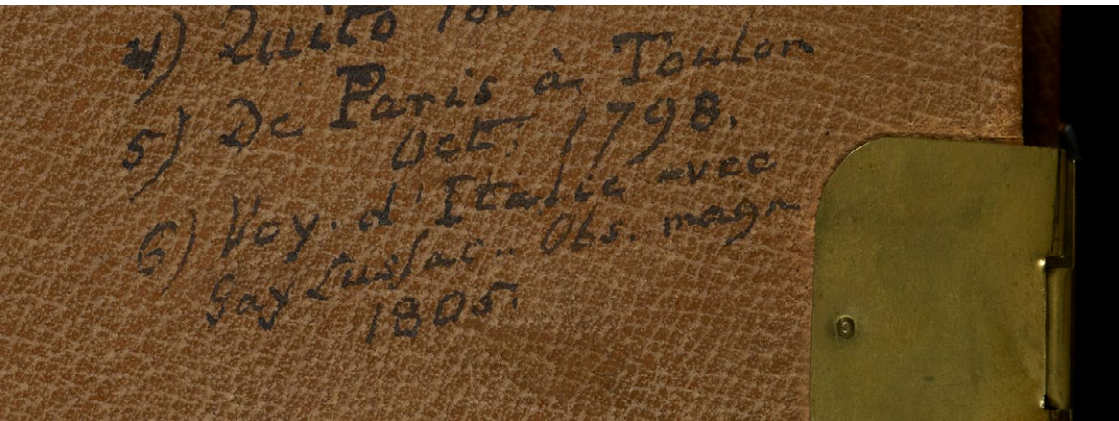 4) Quito
5) De Paris à Toulon
Oct. 1798.
6) Voy. d'Italie avec
Gay Lussac.. Obs. magn
1805.